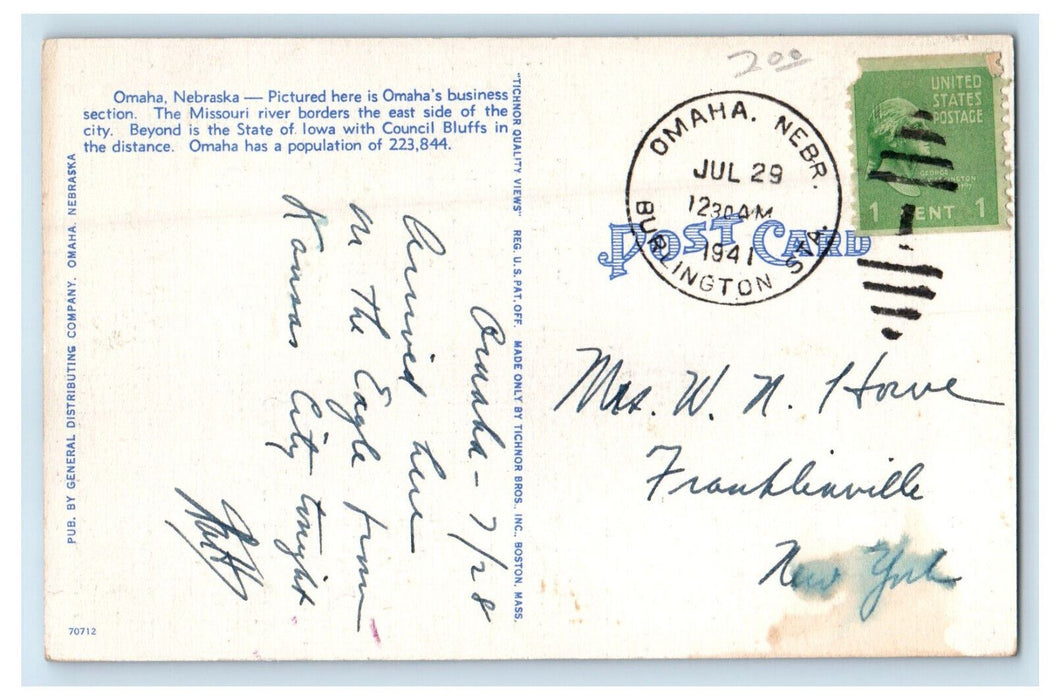 Omaha, Nebraska — Pictured here is Omaha's business
section. The Missouri river borders the east side of the
city. Beyond is the State of Iowa with Council Bluffs in
the distance. Omaha has a population of 223,844.
PUB. BY GENERAL DISTRIBUTING COMPANY, OMAHA, NEBRASKA
70712
Omaha - 7/28
Arrived here
on the Eagle from
Kansas City tonight.
"TICHNOR QUALITY VIEWS" REG. U. S. PAT. OFF. MADE ONLY BY TICHNOR BROS., INC., BOSTON, MASS.
200
OMAHA. NEBR.
JUL 29
1230 AM
1941
BURLINGTON STA.
POST CARD
UNITED
STATES
POSTAGE
GEORGE
WASHINGTON
1 CENT 1
Mrs. W. N. Howe
Franklinville
New York